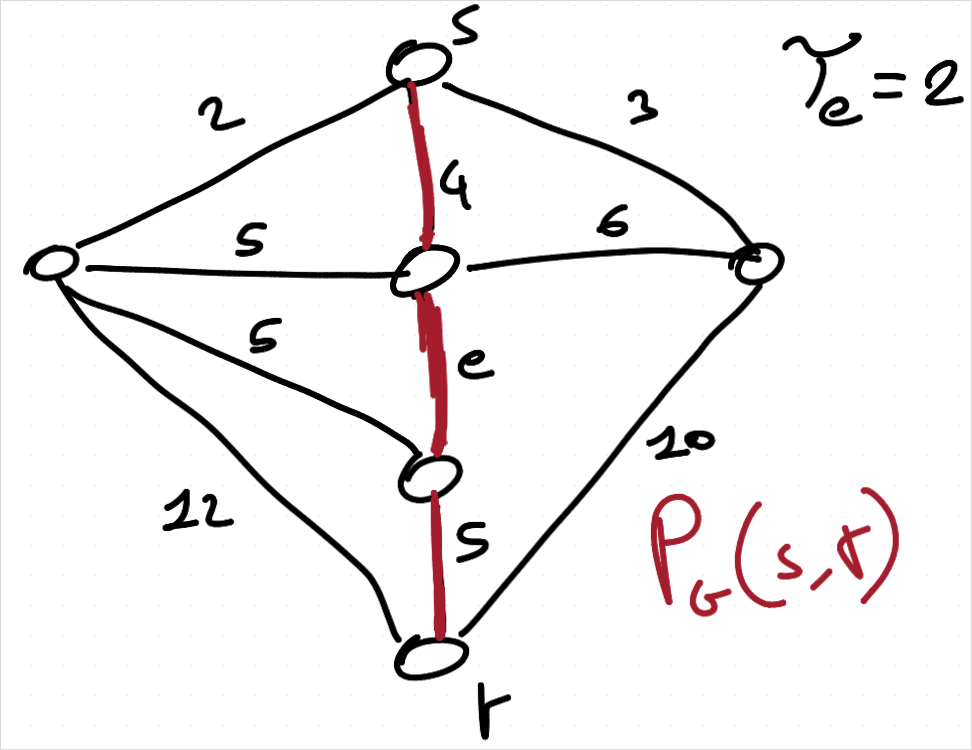 s
𝒯e = 2
2
3
4
5
6
5
e
12
10
5
P_G(s,r)
r